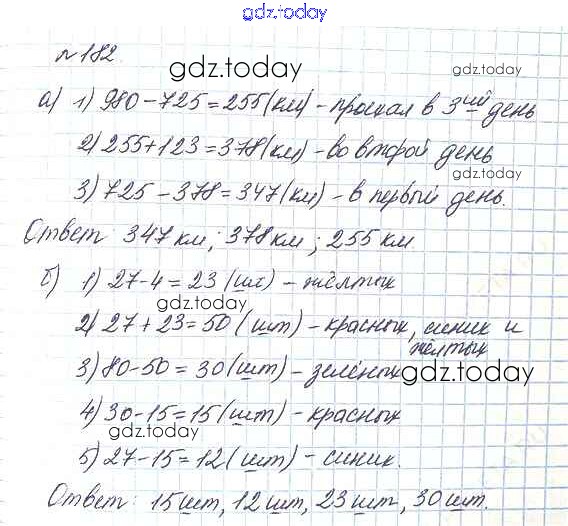 gdz.today
№182.
gdz.today
а) 1) 980-725=255(км) - проехал в 3ий день
gdz.today
2) 255+123=378(км) - во второй день
gdz.today
gdz.today
3) 725-378=347(км) - в первый день.
Ответ: 347 км; 378 км; 255 км
б) 1) 27-4=23 (шт) - жёлтых
gdz.today
2) 27+23=50 (шт) - красных, синих и
жёлтых
3) 80-50=30(шт) - зелёных
gdz.today
4) 30-15=15(шт) - красных
gdz.today
5) 27-15=12(шт) - синих.
Ответ: 15шт, 12шт, 23шт, 30шт.